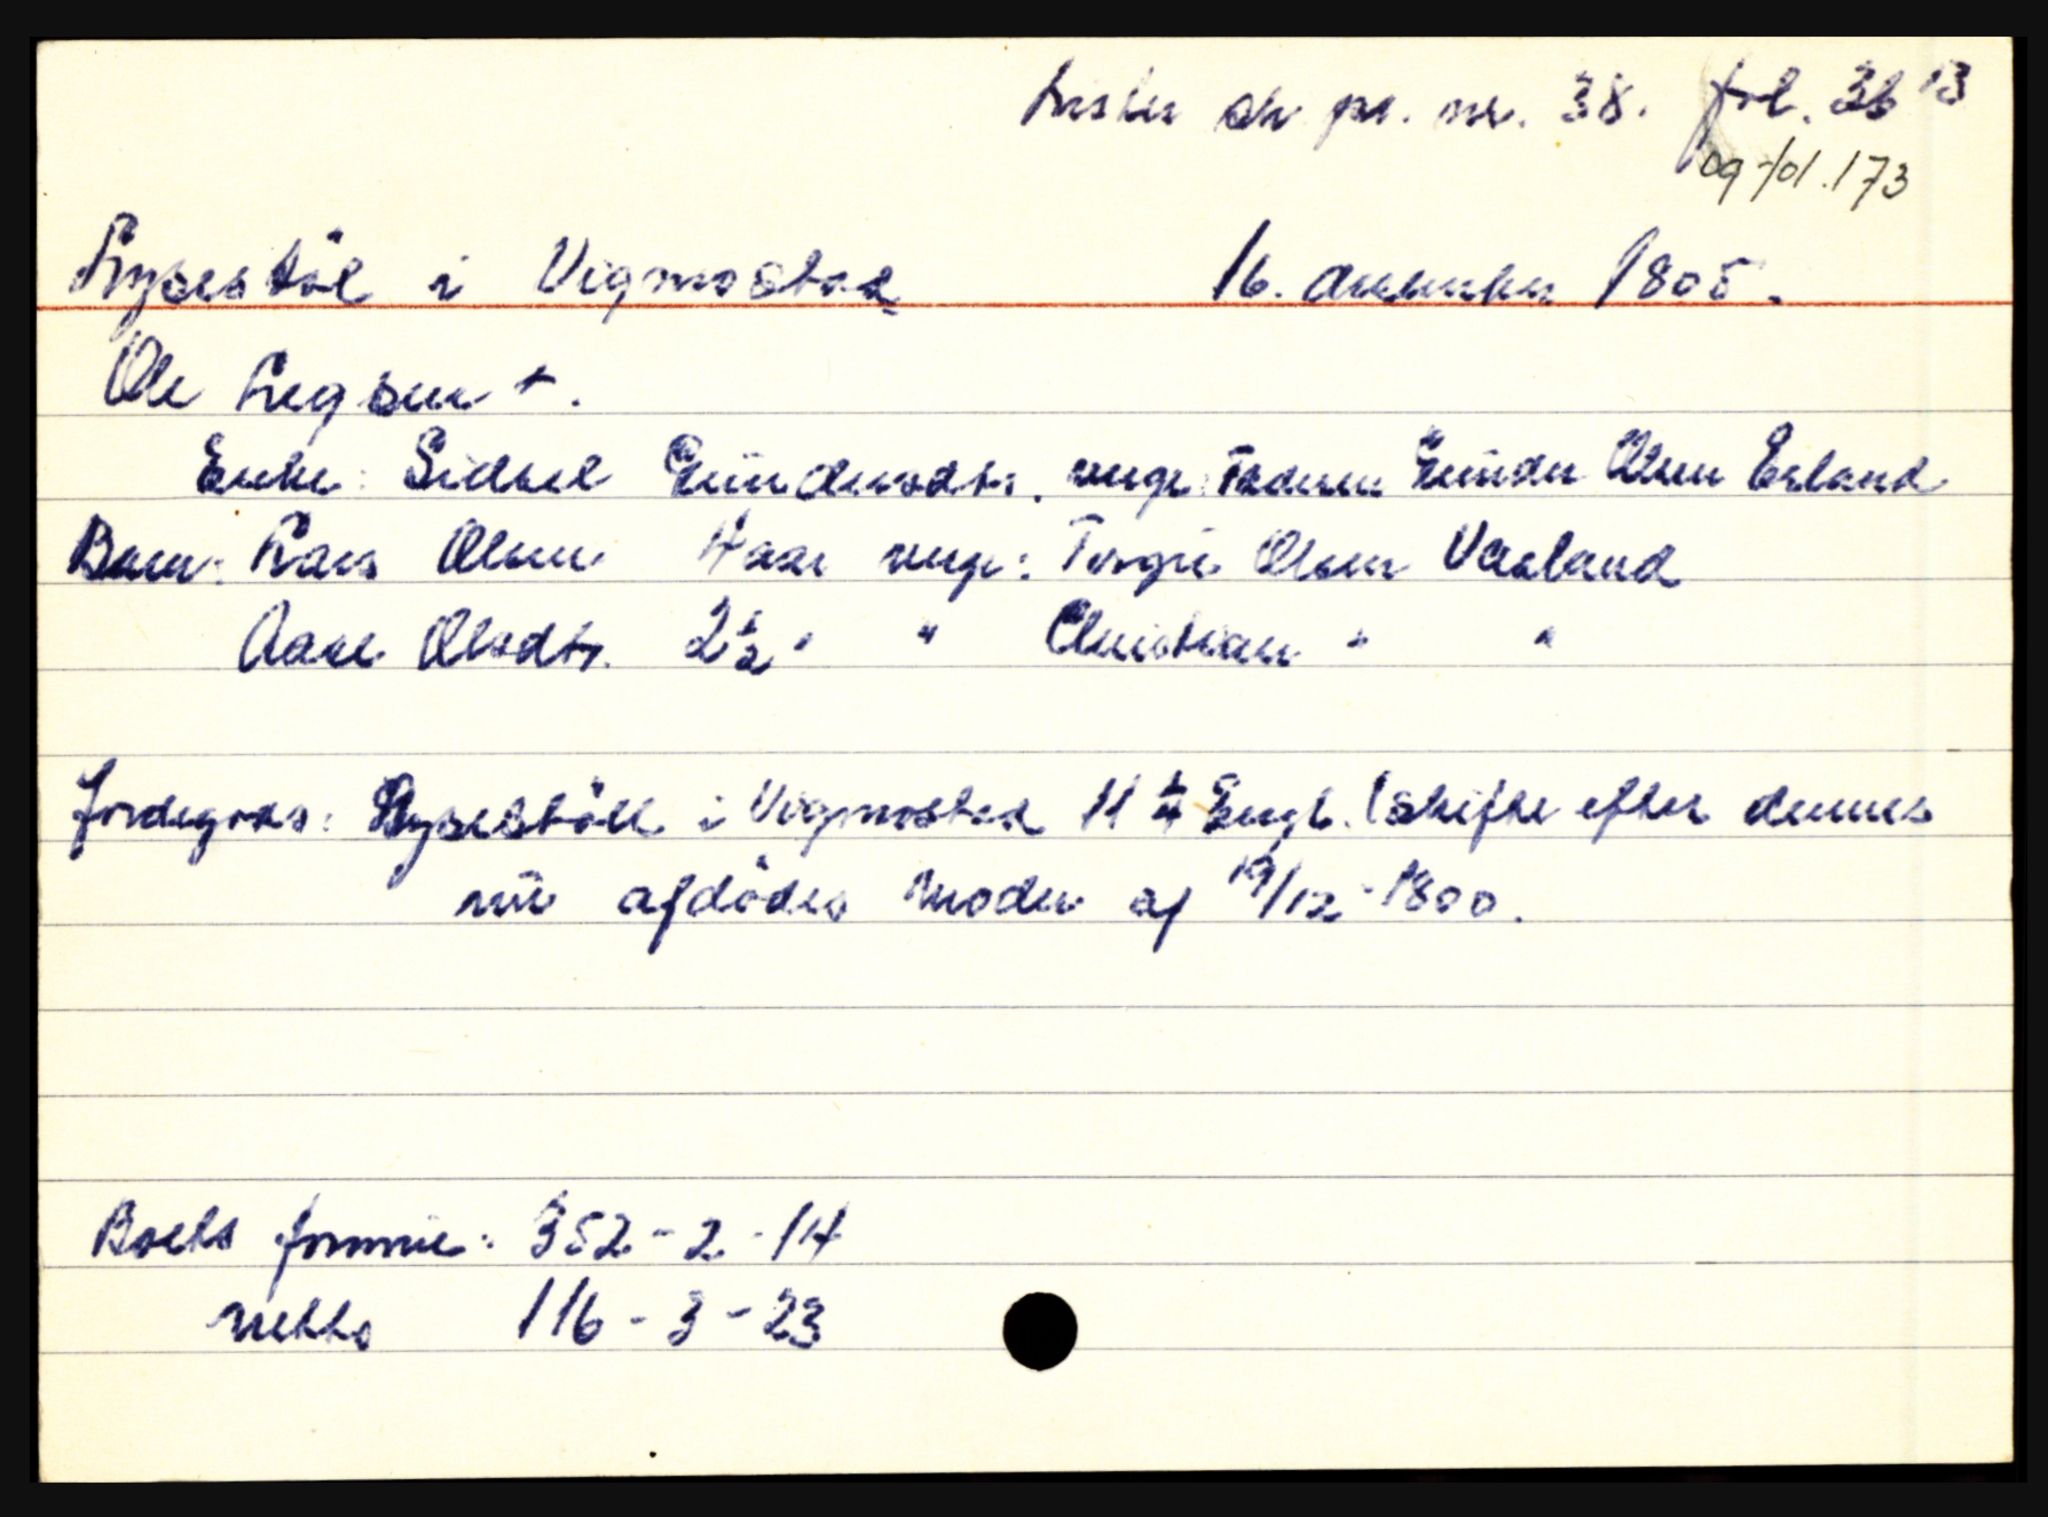 Lister sk. pr. nr. 38. fol. 36 B
og fol. 173
Lyselstöl i Vigmostad 16. desember 1805.
Ole Legsen +.
Enke: Sidsel Gundersdtr. verge: Faderen Gunder Olsen Erland
Barn: Lars Olsen 4 aar verge: Torgus Olsen Vasland
Aase Olsdtr. 2 1/2 " " Christian " "
Jordegods: Lyselstöll i Vigmostad 11 1/4 Engl. (skifte efter dennes
nu afdödes moder af 19/12-1800.
Boets formue: 352-2-14
netto 116-3-23